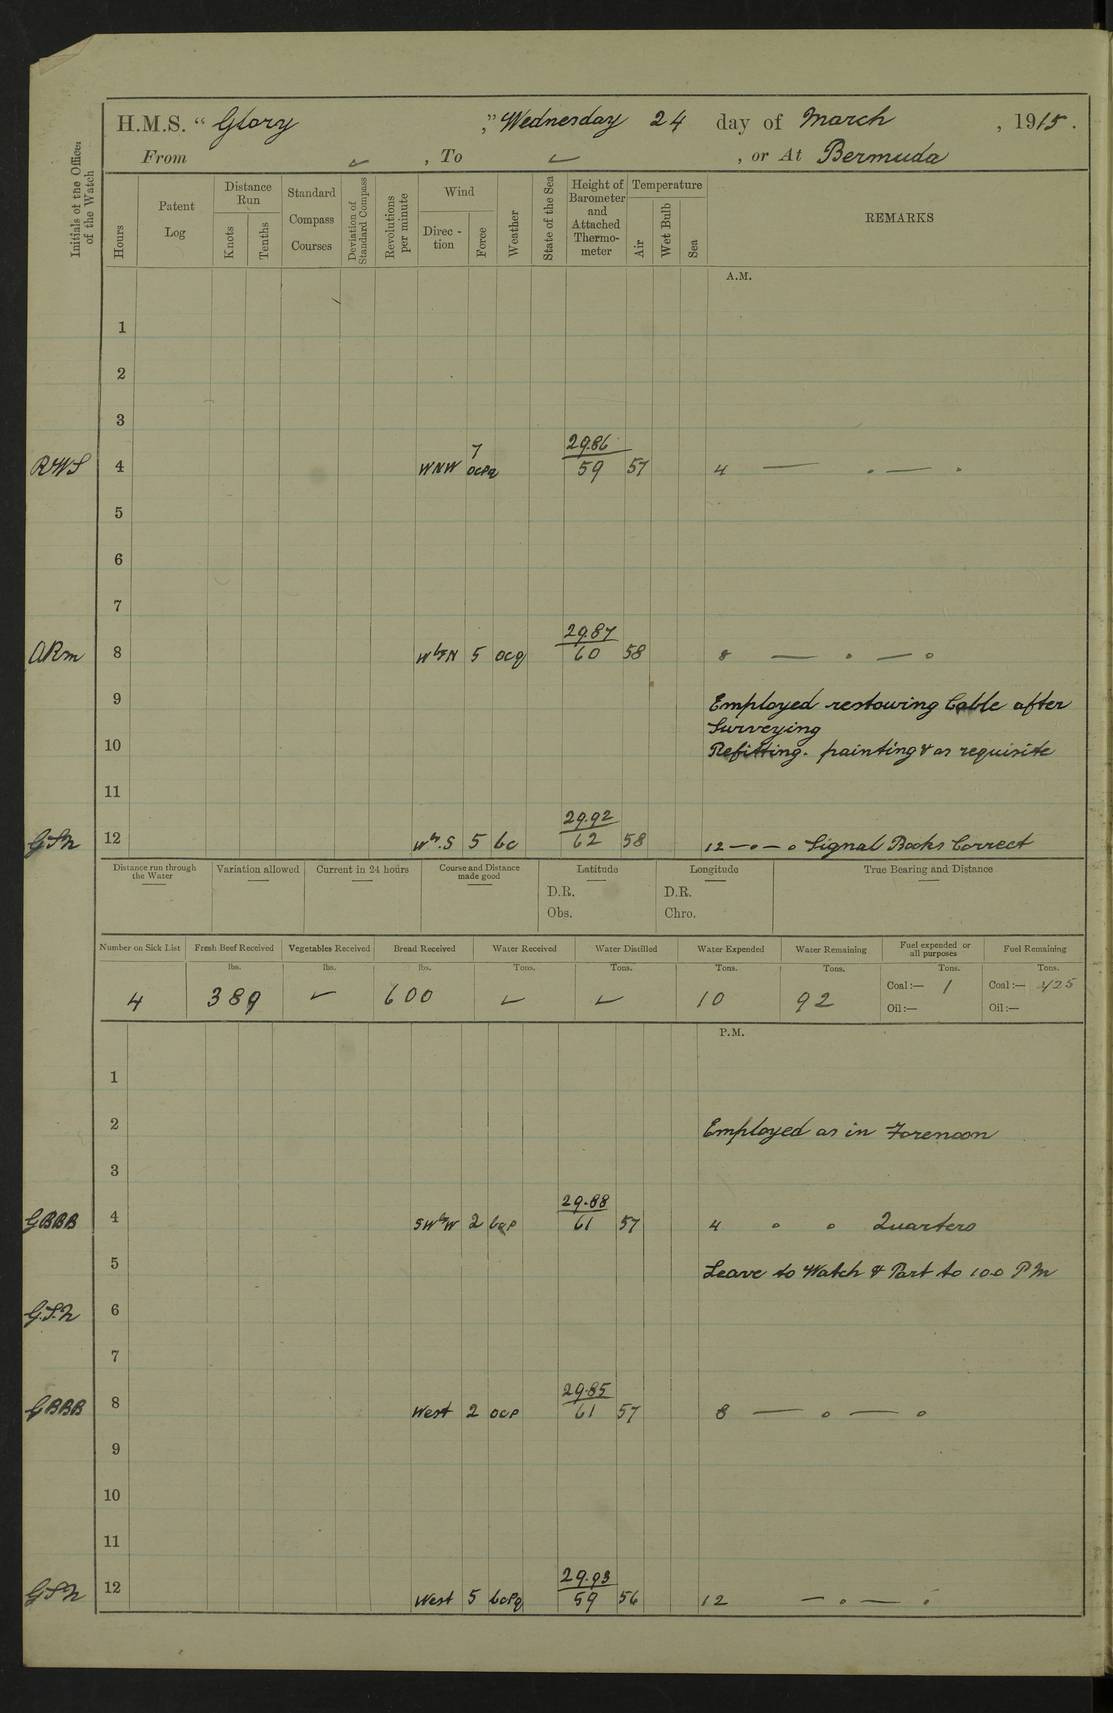 H.M.S. “ Glory ,” Wednesday 24 day of March , 1915.
From ✓ , To ✓ , or At Bermuda
Initials of the Officer of the Watch
Hours
Patent Log
Distance Run
Knots
Tenths
Standard Compass Courses
Deviation of Standard Compass
Revolutions per minute
Wind
Direc-tion
Force
Weather
State of the Sea
Height of Barometer and Attached Thermo-meter
Temperature
Air
Wet Bulb
Sea
REMARKS
A.M.
1
2
3
29.86
7
RWS 4 WNW ocpq 59 57 4 — . — .
5
6
7
29.87
ARm 8 WbyN 5 ocq 60 58 8 — . — o
9 Employed restowing Cable after
Surveying
10 Refitting. painting & as requisite
11
29.92
12 Wby.S 5 bc 62 58 12 — o — o Signal Books Correct
Distance run through the Water
Variation allowed
Current in 24 hours
Course and Distance made good
Latitude
D.R.
Obs.
Longitude
D.R.
Chro.
True Bearing and Distance
Number on Sick List
Fresh Beef Received
Vegetables Received
Bread Received
Water Received
Water Distilled
Water Expended
Water Remaining
Fuel expended or all purposes
Fuel Remaining
lbs. lbs. lbs. Tons. Tons. Tons. Tons. Tons. Tons.
4 389 ✓ 600 ✓ ✓ 10 92 Coal:— 1 Coal:— 425
Oil:— Oil:—
P.M.
1
2 Employed as in Forenoon
3
29.88
GBBB 4 SWbyW 2 bcp 61 57 4 o o Quarters
5 Leave to Watch & Part to 10.0 PM
6
7
29.85
GBBB 8 West 2 ocp 61 57 8 — o — o
9
10
11
29.93
12 West 5 bcpq 59 56 12 — o — o